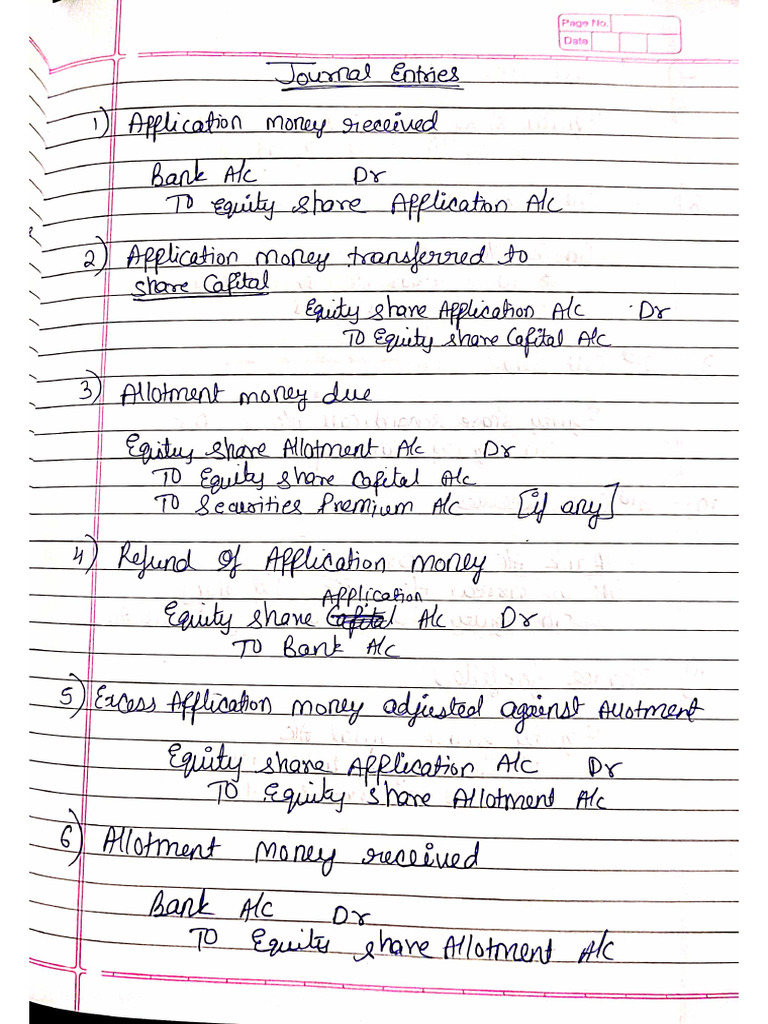 Page No.
Date
Journal Entries
1) Application money received
Bank A/c Dr
To Equity share Application A/c
2) Application money transferred to
share Capital
Equity share Application A/c Dr
To Equity share Capital A/c
3) Allotment money due
Equity share Allotment A/c Dr
To Equity share Capital A/c
To Securities Premium A/c [if any]
4) Refund of Application money
Application
Equity share A/c Dr
To Bank A/c
5) Excess Application money adjusted against Allotment
Equity share Application A/c Dr
To Equity share Allotment A/c
6) Allotment money received
Bank A/c Dr
To Equity share Allotment A/c